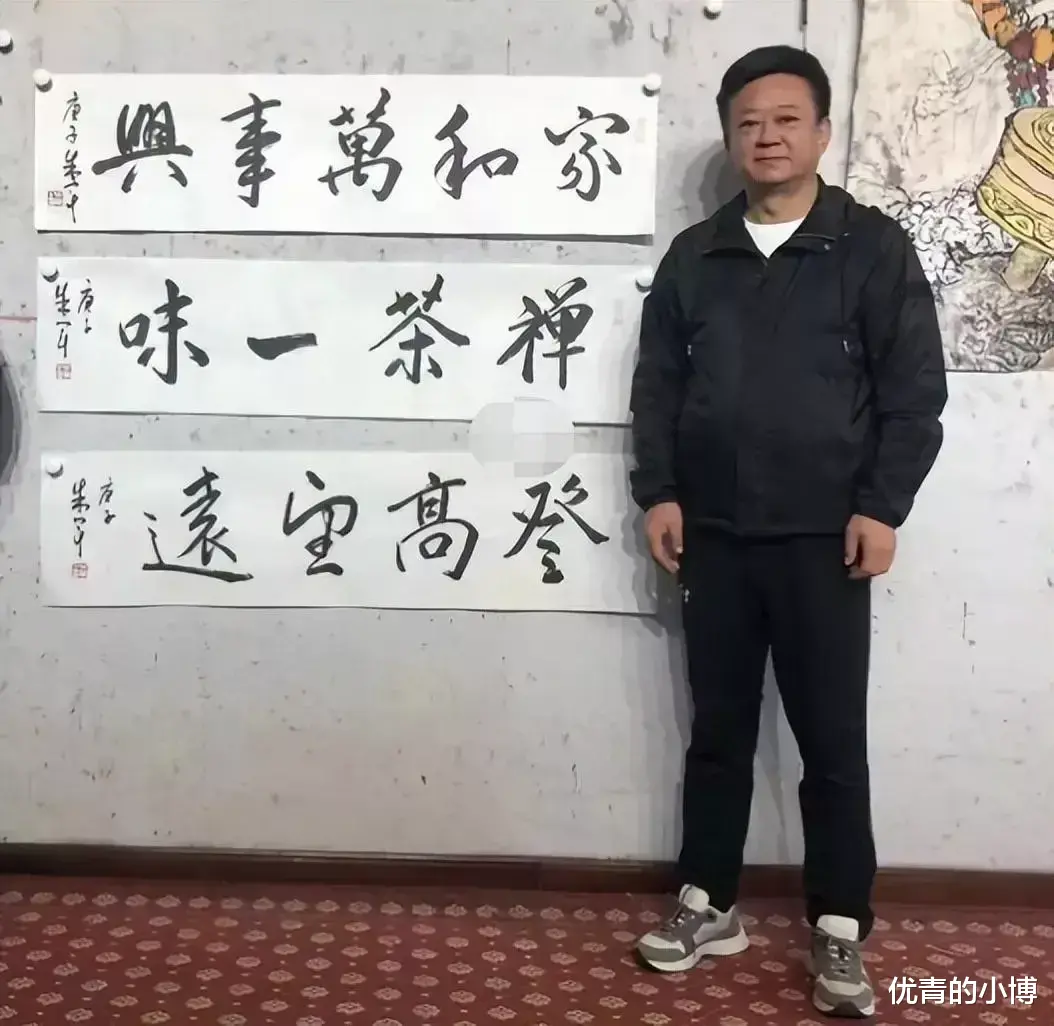 家和萬事興
庚子朱軍
禅茶一味
庚子
朱軍
登高望遠
庚子
朱軍
优青的小博